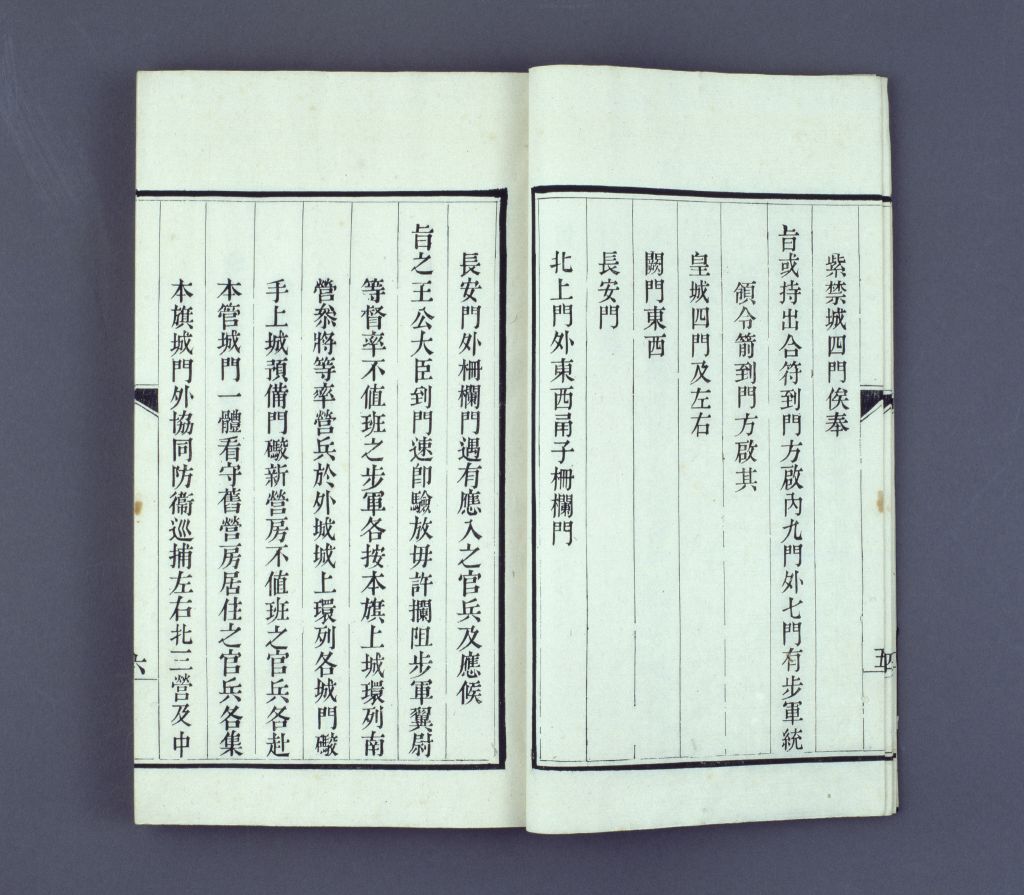 紫禁城四門俟奉
旨或持出合符到門方啟內九門外七門有步軍統
領令箭到門方啟其
皇城四門及左右
闕門東西
長安門
北上門外東西甬子柵欄門
五
長安門外柵欄門遇有應入之官兵及應候
旨之王公大臣到門速卽驗放毋許攔阻步軍翼尉
等督率不值班之步軍各按本旗上城環列南
營叅將等率營兵於外城城上環列各城門礮
手上城預備門礮新營房不值班之官兵各赴
本管城門一體看守舊營房居住之官兵各集
本旗城門外協同防衞巡捕左右北三營及中
六